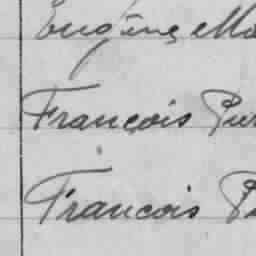 Eugène Ma
François Pur
Francois Pu